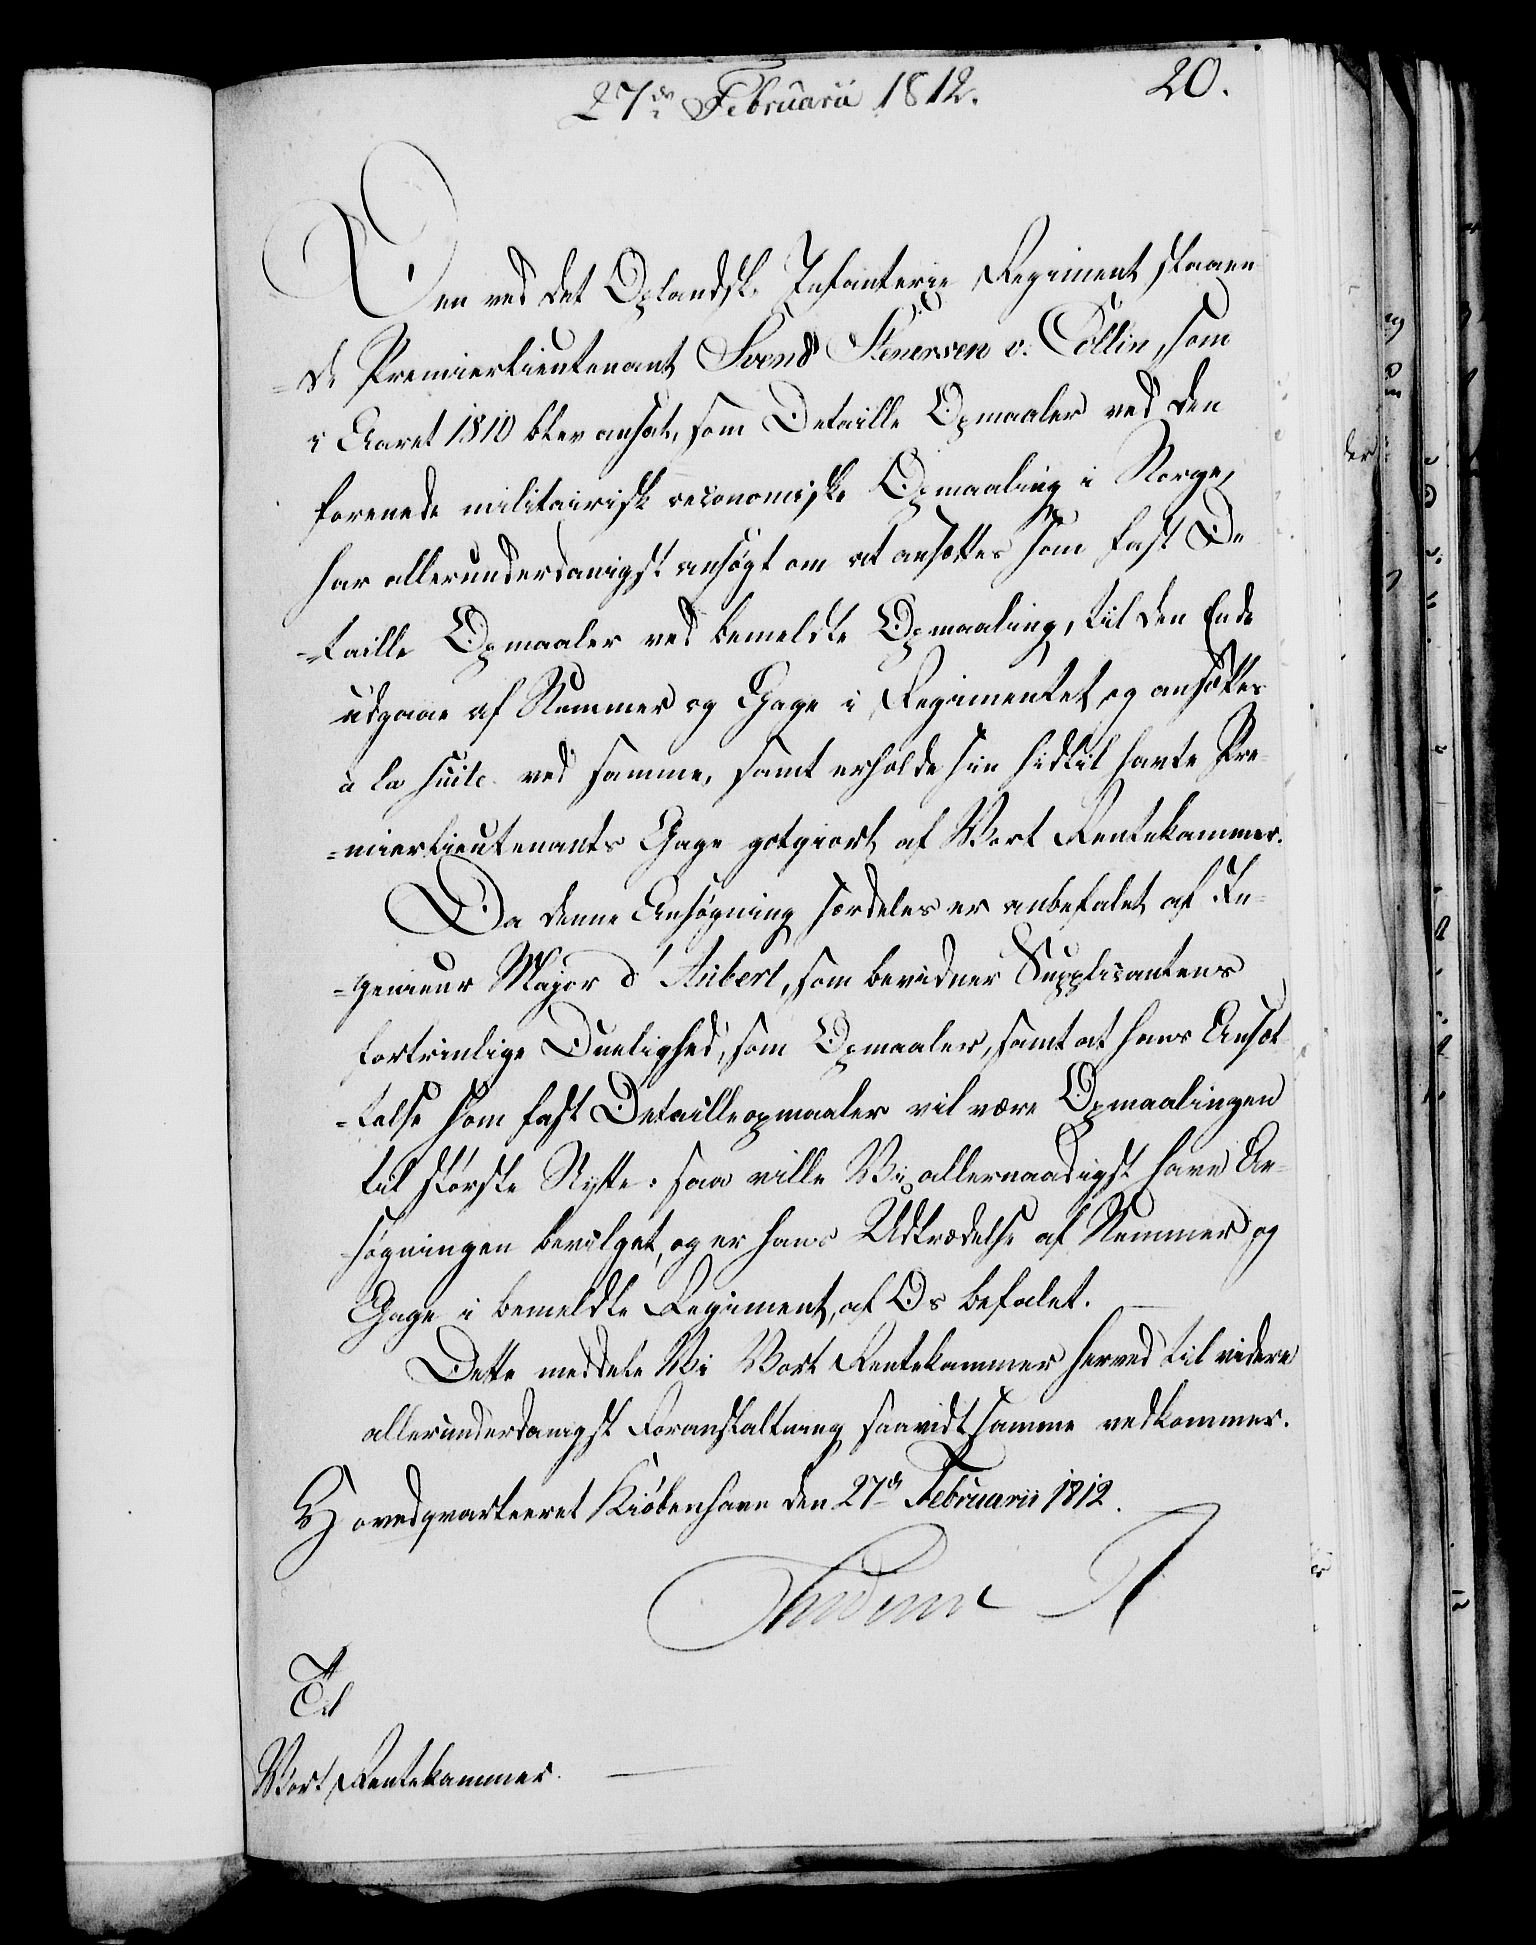 27de Februarii 1812.
20.
Den ved det Oplandske Infanterie Regiment staaen
=de Premierlieutenant Svend Stenersen v: Collin, som
i Aaret 1810 blev ansat, som Detaille Opmaaler ved den
forenede militairisk oeconomiske Opmaaling i Norge,
har allerunderdanigst ansøgt om at ansættes som fast De
=taille Opmaaler ved bemeldte Opmaaling, til den Ende
udgaae af Nummer og Gage i Regimentet, og ansættes
à la suite ved samme, samt erholde sin hidtil havte Pre=
=mierlieutenants Gage gotgiort af Vort Rentekammer.
Da denne Ansøgning særdeles er anbefalet af In=
=genieur Major d'Aubert, som bevidner Supplicantens
fortrinlige Duelighed, som Opmaaler, samt at hans Ansæt
=telse som fast Detailleopmaaler vil være Opmaalingen
til største Nytte: saa ville Vi allernaadigst have An=
søgningen bevilget, og er hans Udtrædelse af Nummer og
Gage i bemeldte Regiment, af Os befalet.
Dette meddele Vi Vort Rentekammer herved til videre
allerunderdanigst Foranstaltning saavidt samme vedkommer.
Hovedqvarteeret Kiöbenhavn den 27de Februarii 1812.
Frederik R
Til
Vort Rentekammer.